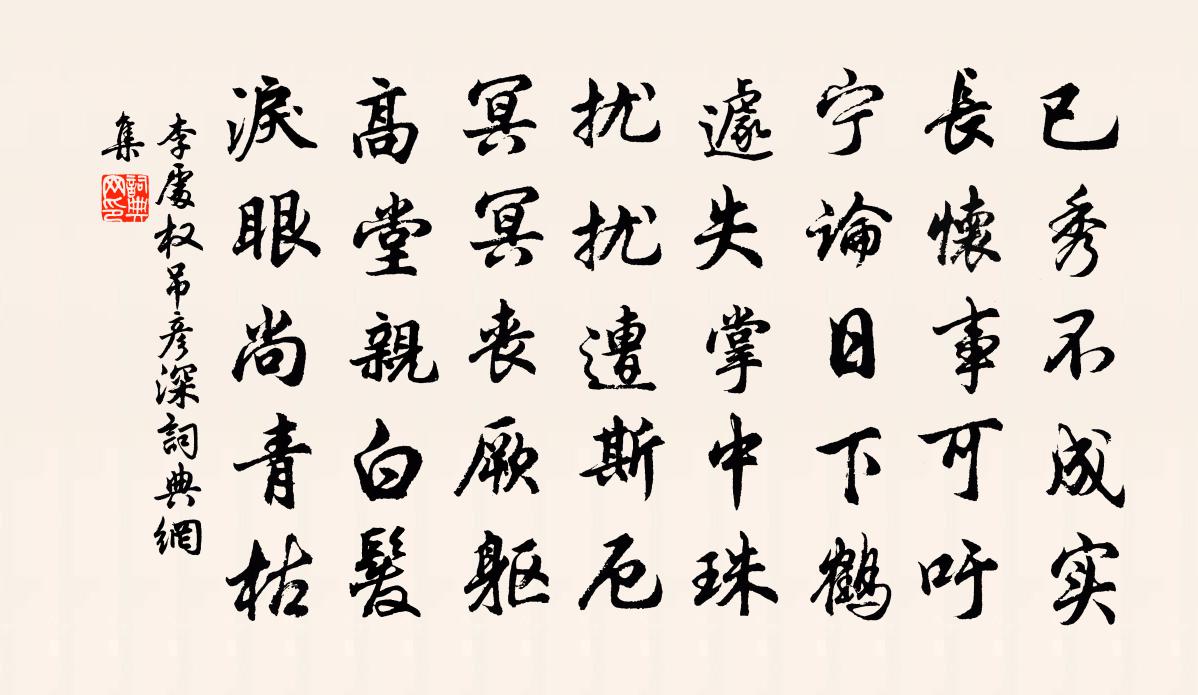 已秀不成实
長懷事可吁
宁論日下鶴
遽失掌中珠
扰扰遭斯厄
冥冥丧厥躯
高堂親白髮
淚眼尚青枯
李處权吊彦深詞典網
集
詞典网印